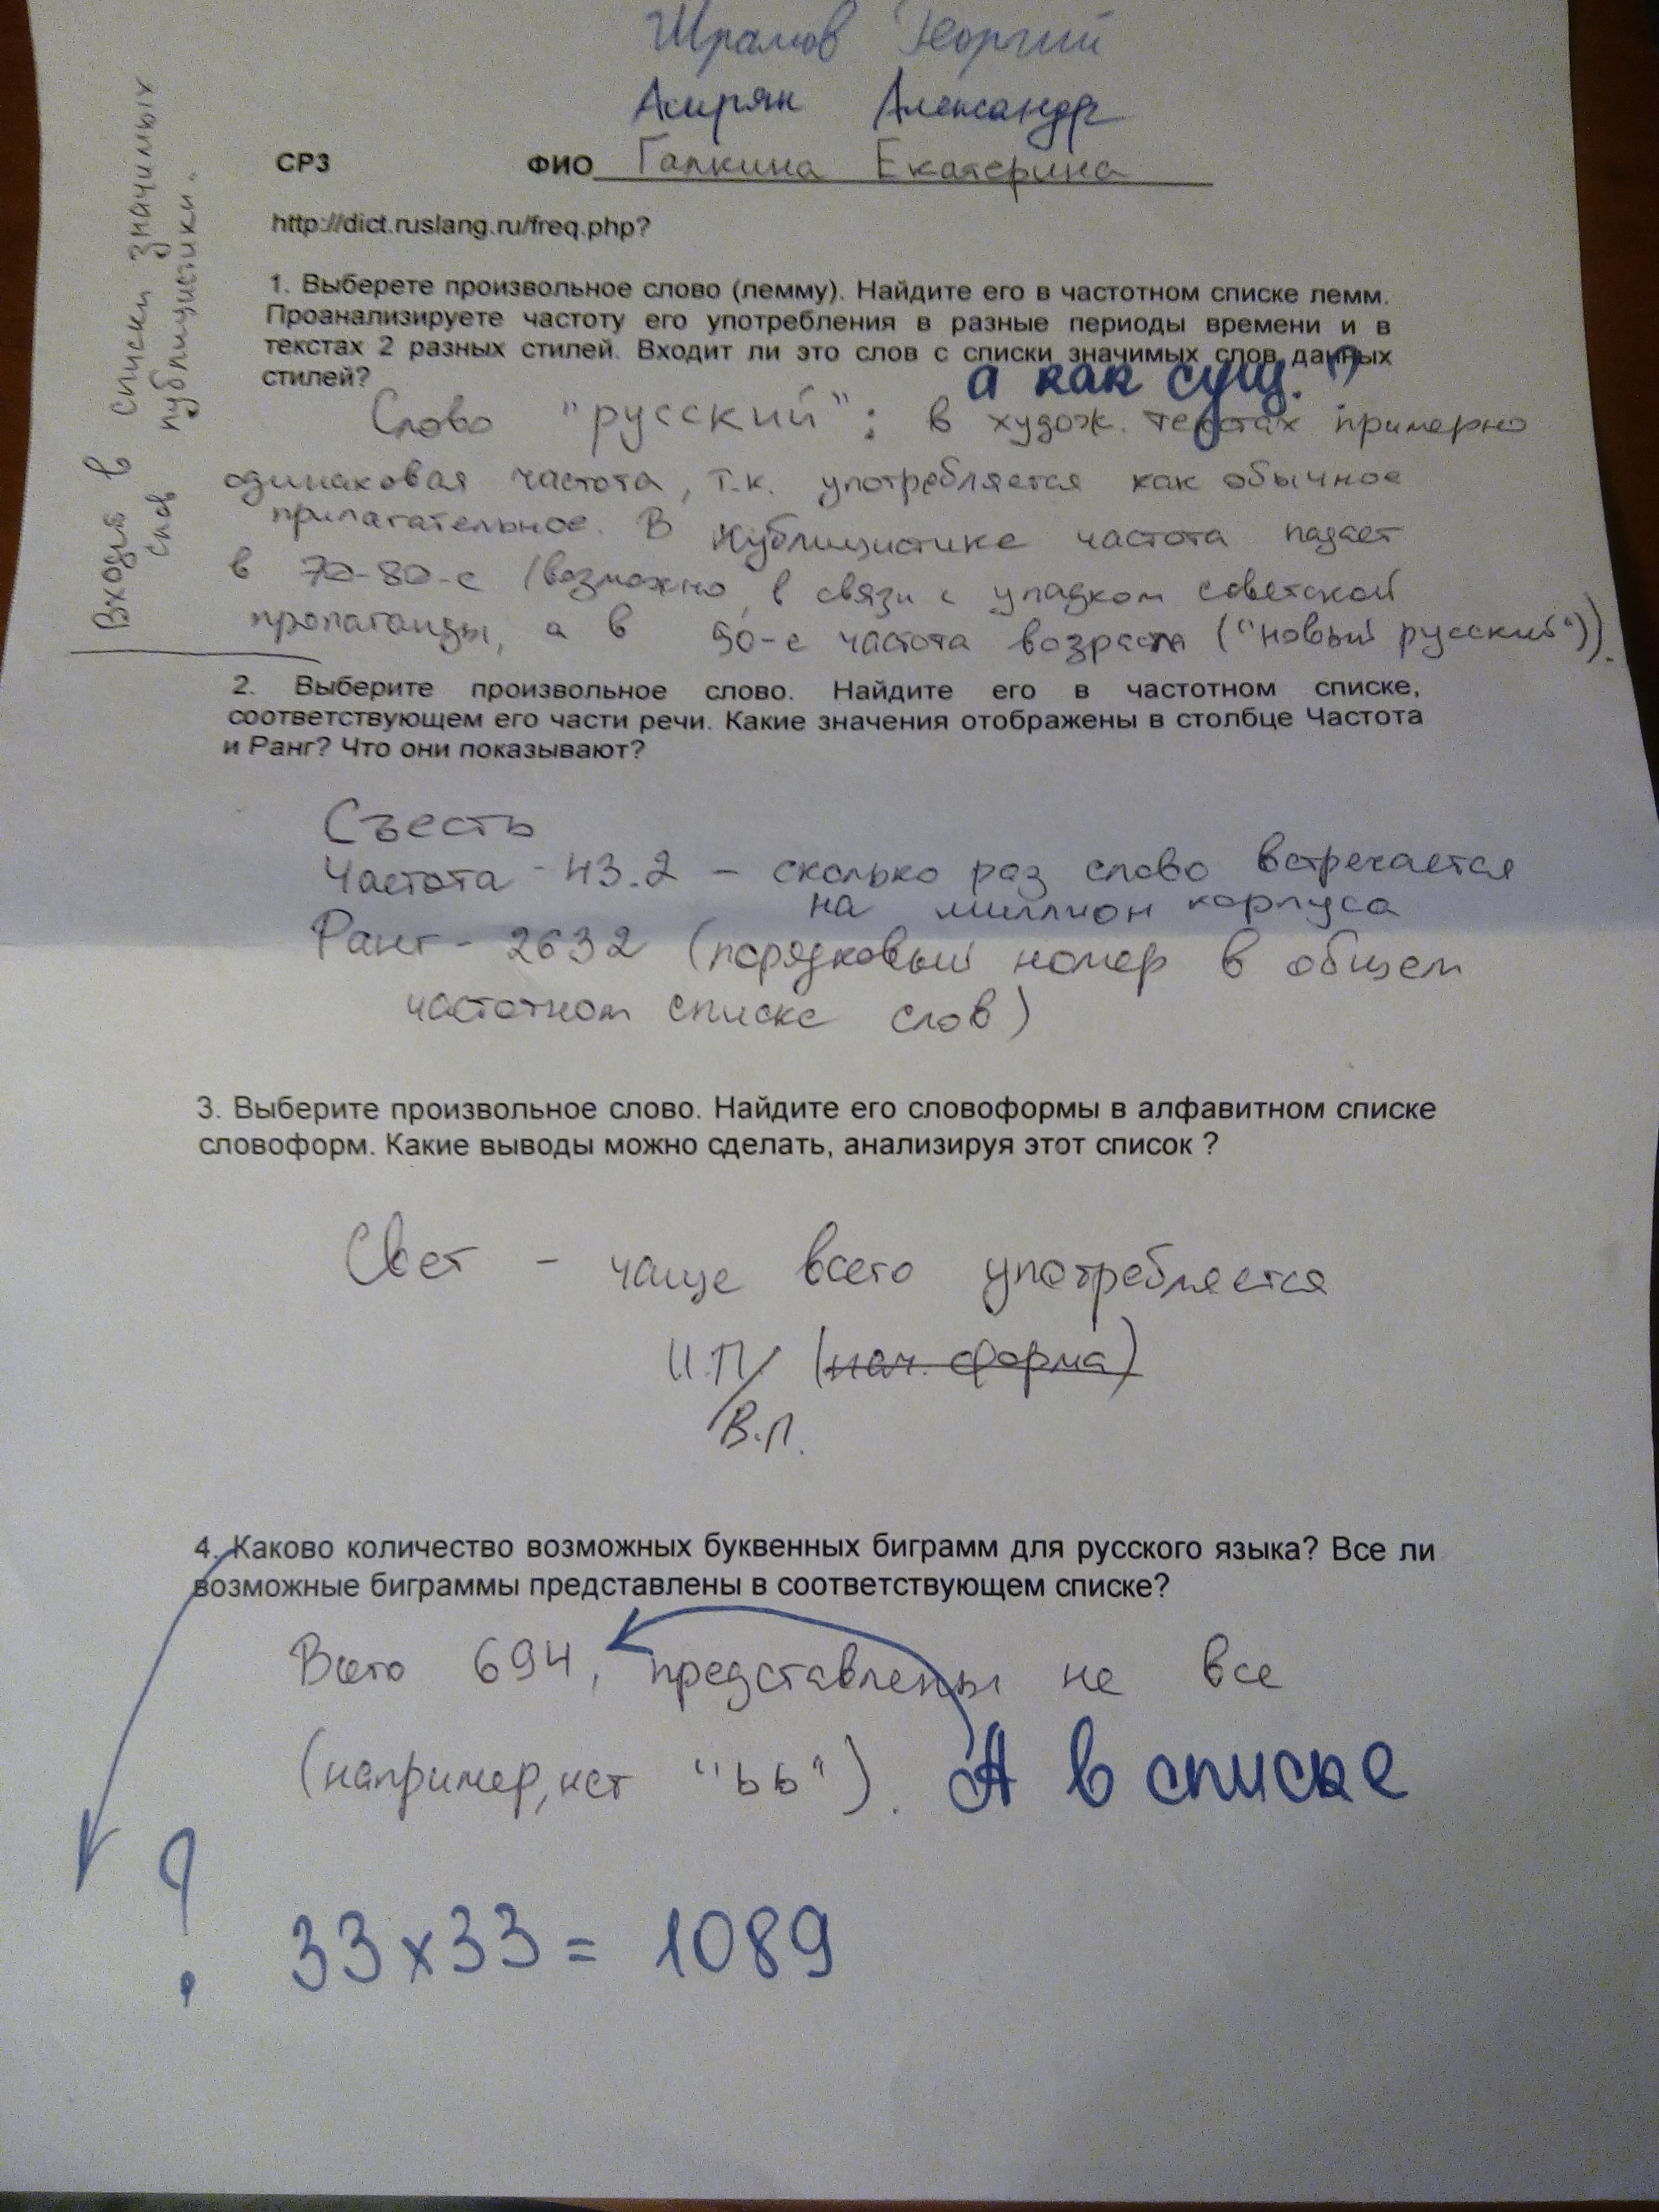 Шрамов Георгий
Асирян Александр
СР3 ФИО Галкина Екатерина
http://dict.ruslang.ru/freq.php?
1. Выберете произвольное слово (лемму). Найдите его в частотном списке лемм.
Проанализируете частоту его употребления в разные периоды времени и в
текстах 2 разных стилей. Входит ли это слов с списки значимых слов данных
стилей?
а как сущ.?
Слово "русский": в худож. текстах примерно
одинаковая частота, т.к. употребляется как обычное
прилагательное. В публицистике частота падает
в 70-80-е (возможно, в связи с упадком советской
пропаганды, а в 90-е частота возрасла ("новый русский")).
Входит в списки значимых
слов публицистики.
2. Выберите произвольное слово. Найдите его в частотном списке,
соответствующем его части речи. Какие значения отображены в столбце Частота
и Ранг? Что они показывают?
Съесть
Частота - 43.2 – сколько раз слово встречается
на миллион корпуса
Ранг - 2632 (порядковый номер в общем
частотном списке слов)
3. Выберите произвольное слово. Найдите его словоформы в алфавитном списке
словоформ. Какие выводы можно сделать, анализируя этот список ?
Свет - чаще всего употребляется
И.П/ (нач. форма)
В.П.
4. Каково количество возможных буквенных биграмм для русского языка? Все ли
возможные биграммы представлены в соответствующем списке?
Всего 694, представлены не все
(например, нет "ьь"). А в списке
? 33x33 = 1089